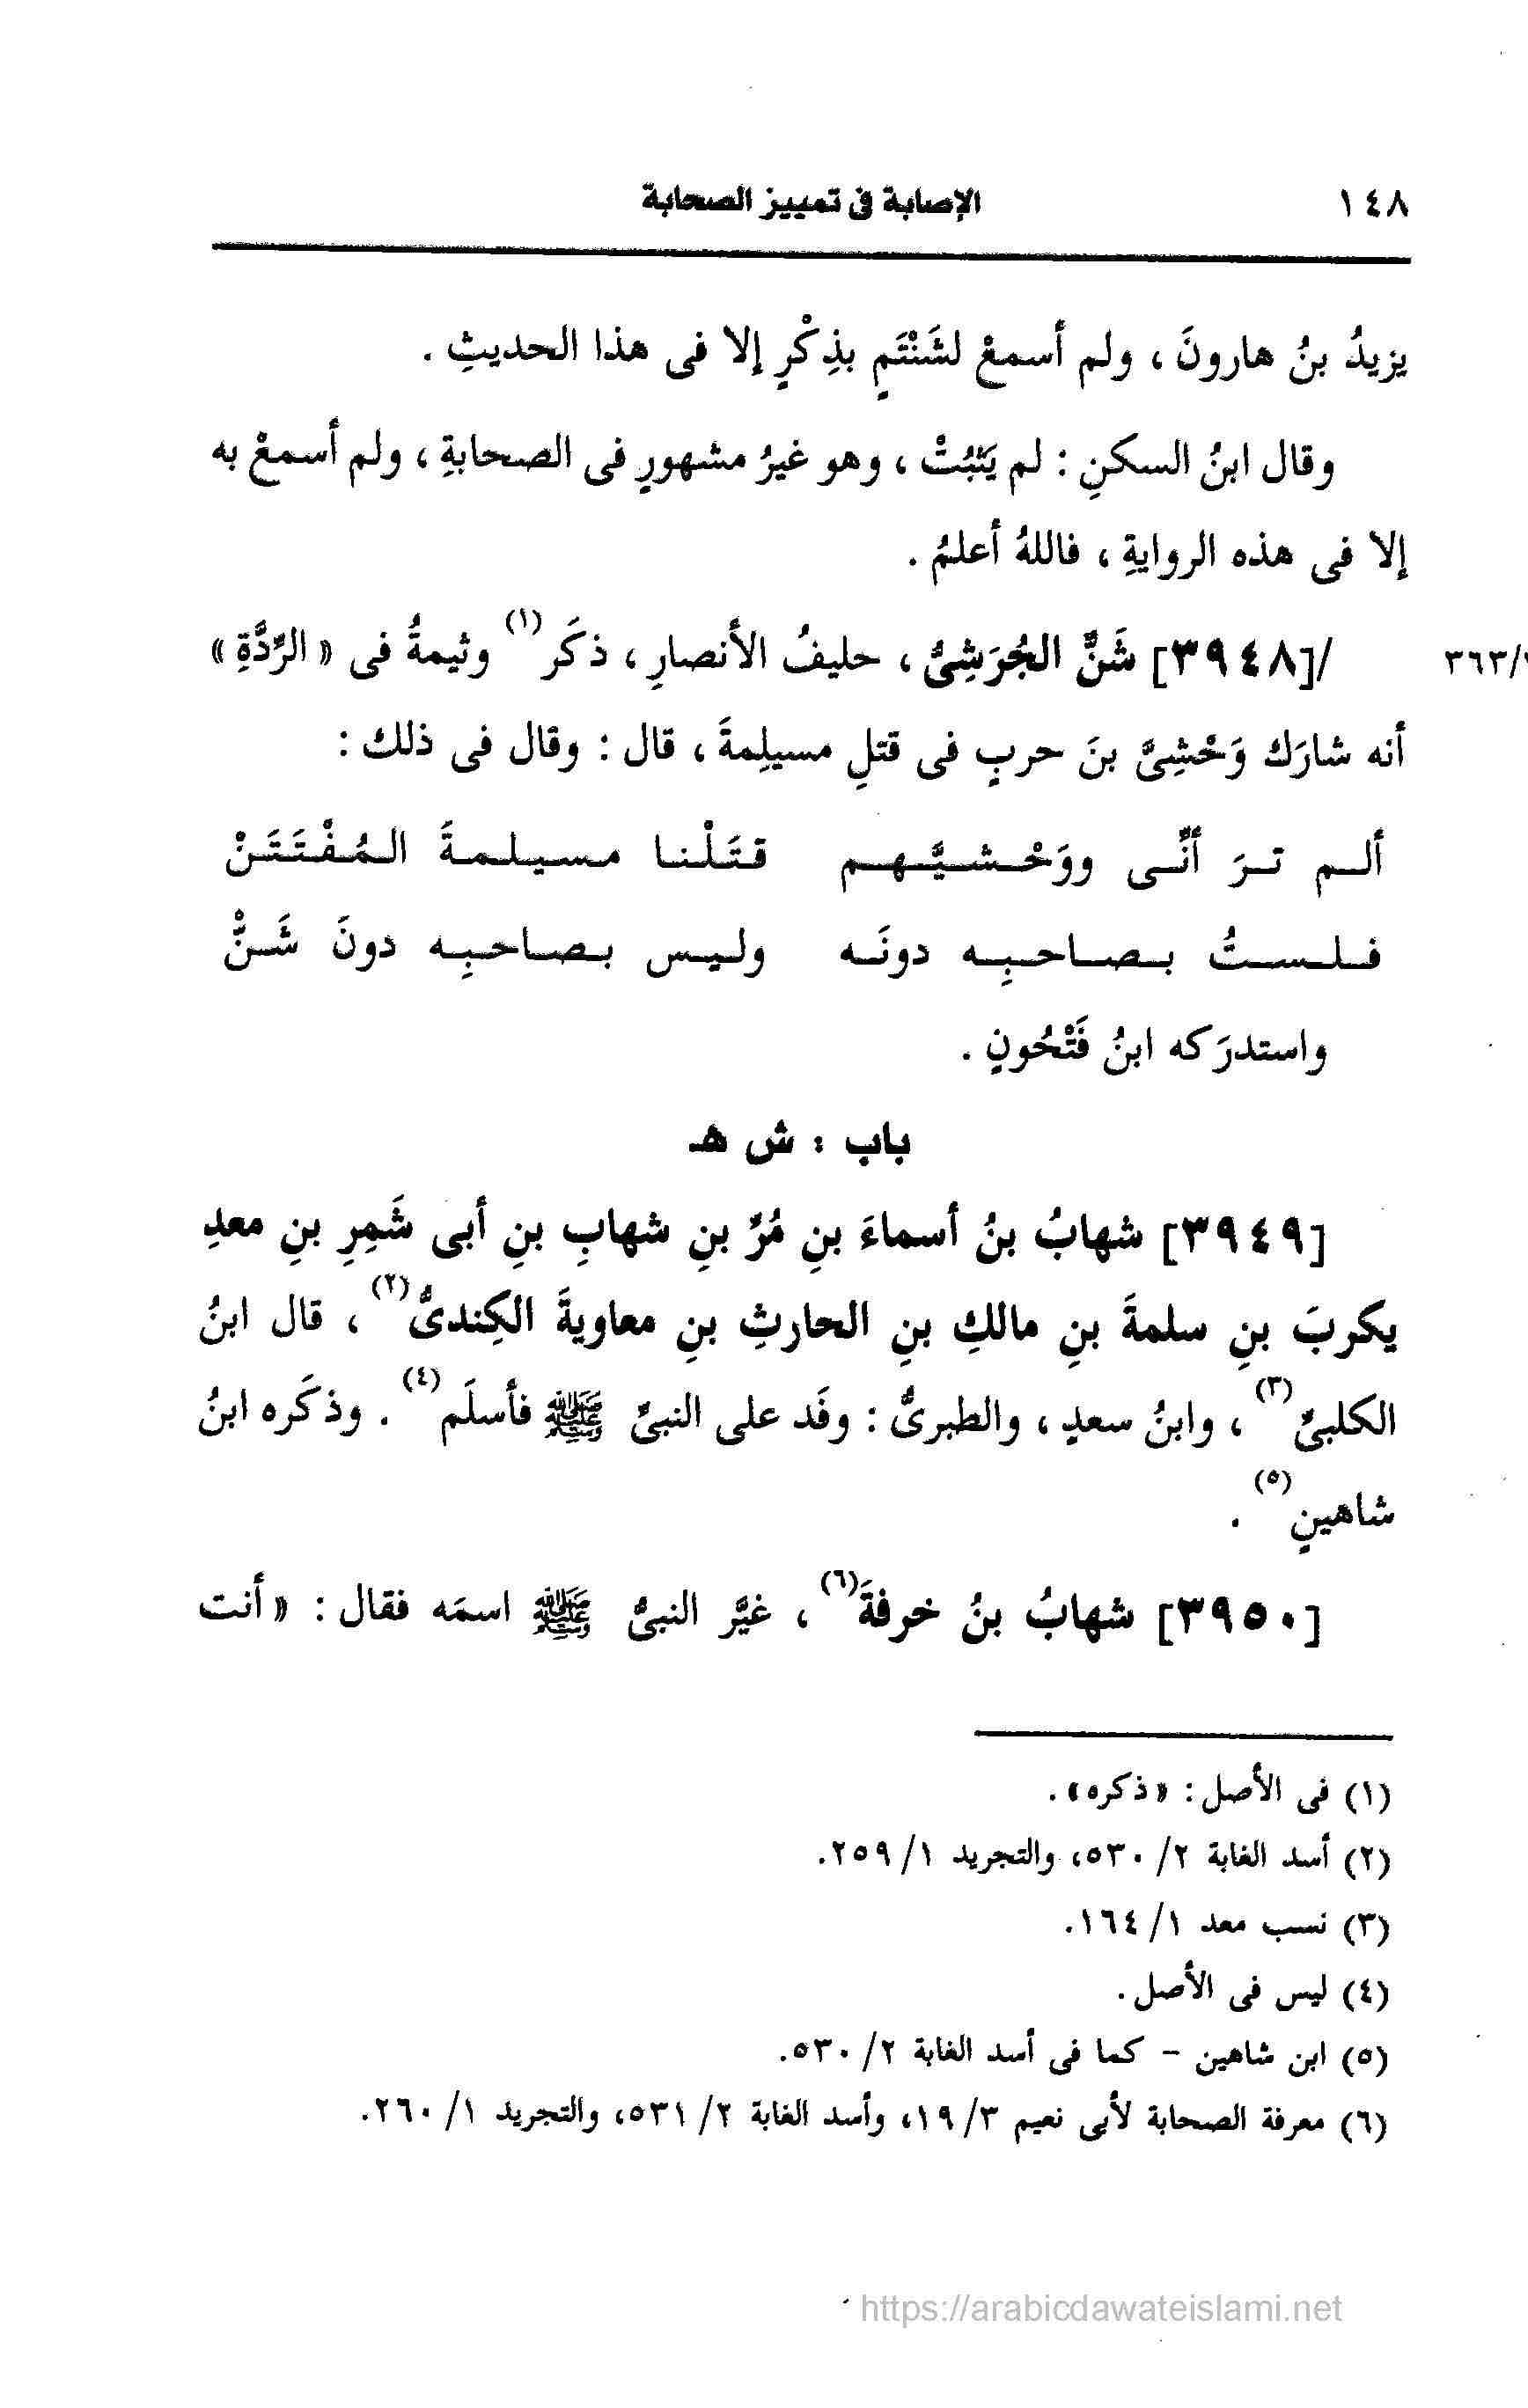 ١٤٨ الإصابة فى تمييز الصحابة
يزيدُ بنُ هارونَ ، ولم أسمعْ لشَنْتَمٍ بذِكْرٍ إلا فى هذا الحديثِ .
وقال ابنُ السكنِ : لم يَثْبُتْ ، وهو غيرُ مشهورٍ فى الصحابةِ ، ولم أسمعْ به
إلا فى هذه الروايةِ ، فاللهُ أعلمُ .
/[٣٩٤٨] شَنٌّ الجُرَشِىُّ ، حليفُ الأنصارِ ، ذكَر(١) وثيمةُ فى «الرِّدَّةِ»
٣٦٣/
أنه شارَك وَحْشِىَّ بنَ حربٍ فى قتلِ مسيلِمةَ ، قال : وقال فى ذلك :
ألم ترَ أنِّى ووَحْشيَّهم قتَلْنا مسيلمةَ المُفْتَتَنْ
فلستُ بصاحبِه دونَه وليس بصاحبِه دونَ شَنْ
واستدرَكه ابنُ فَتْحُونٍ .
باب : ش هـ
[٣٩٤٩] شهابُ بنُ أسماءَ بنِ مُرِّ بنِ شهابِ بنِ أبى شَمِرِ بنِ معدِ
يكربَ بنِ سلمةَ بنِ مالكِ بنِ الحارثِ بنِ معاويةَ الكِندىُّ(٢) ، قال ابنُ
الكلبىِّ(٣) ، وابنُ سعدٍ ، والطبرىُّ : وفَد على النبىِّ ﷺ فأسلَم(٤) . وذكَره ابنُ
شاهينٍ(٥) .
[٣٩٥٠] شهابُ بنُ خرفةَ(٦) ، غيَّر النبىُّ ﷺ اسمَه فقال : «أنت
(١) فى الأصل : «ذكره» .
(٢) أسد الغابة ٢/ ٥٣٠، والتجريد ١/ ٢٥٩.
(٣) نسب معد ١/ ١٦٤.
(٤) ليس فى الأصل .
(٥) ابن شاهين - كما فى أسد الغابة ٢/ ٥٣٠.
(٦) معرفة الصحابة لأبى نعيم ٣/ ١٩، وأسد الغابة ٢/ ٥٣١، والتجريد ١/ ٢٦٠.
https://arabicdawateislami.net